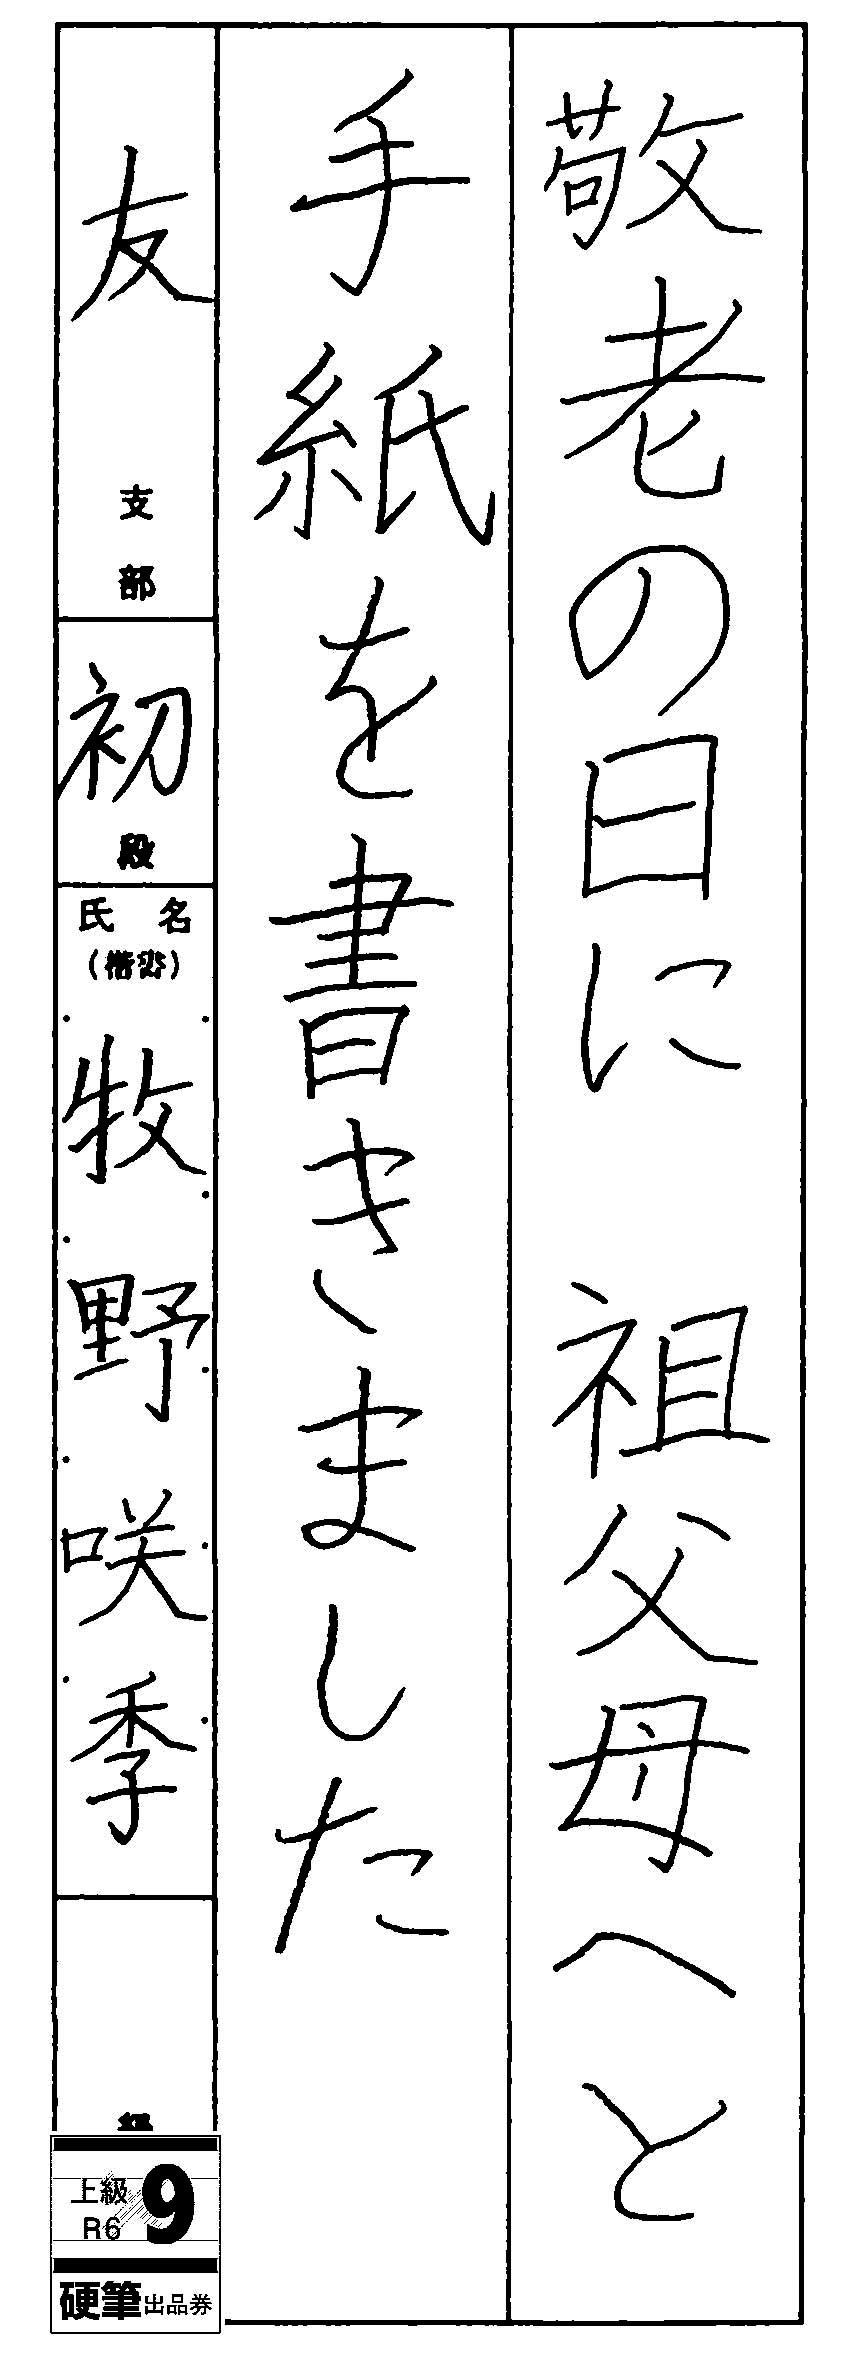 敬老の日に 祖父母へと
手紙を書きました
友 支部
初 段
氏名
牧野咲季
級
上級 9
R6
硬筆出品券